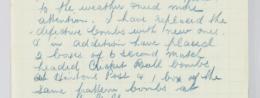 to the weather need more
attention. I have replaced the
defective bombs with new ones.
& in addition have placed
2 boxes of 6 second match
headed Cricket Ball bombs
at Bentons Post & 1 box of the
same pattern bombs at